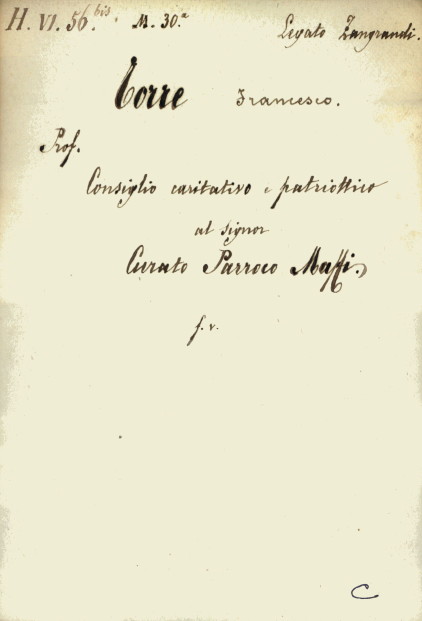 H. VI. 56.bis. M. 30.a Legato Zangrandi.
Torre Francesco.
Prof.
Consiglio caritativo e patriottico
al signor
Curato Parroco Maffi.
f. v.
C